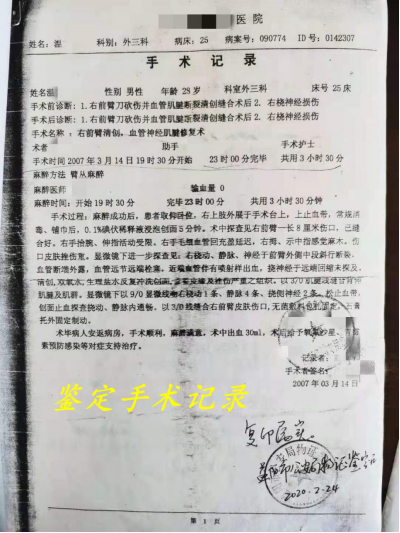 医院
姓名:温 科别:外三科 病床:25 病案号:090774 ID号:0142307
手术记录
姓名 性别 男性 年龄 28岁 科室外三科 床号25床
手术前诊断:1.右前臂刀砍伤并血管肌腱断裂清创缝合术后 2.右桡神经损伤
手术后诊断:1.右前臂刀砍伤并血管肌腱断裂清创缝合术后 2.右桡神经损伤
手术名称:右前臂清创,血管神经肌腱修复术
术者 助手 手术护士
手术时间 2007年3月14日19时30分开始 23时00分完毕 共用3小时30分
麻醉方法 臂丛麻醉
麻醉医师 输血量 0
麻醉时间:开始19时30分 完毕23时00分 共用3小时30分钟
手术过程:麻醉成功后,患者取仰卧位,右上肢外展于手术台上,上止血带,常规消
毒、铺巾后,0.1%碘伏稀释液浸泡创面5分钟。术中探查见右前臂一长8厘米伤口,已缝
合好。右手治腕、伸指活动受限。右手毛细血管回充盈延迟,右拇、示中指感觉麻木。伤
口皮肤挫伤重。显微镜下进一步探查见:右桡动、静脉、神经于前臂外侧中段斜行断裂,
血管断端外露,血管远节远端栓塞,近端血管伴有喷射样出血,挠神经于远端回缩未探及,
清创,双氧水,生理盐水反复冲洗创面,
肌腱及肌群,显微镜下以9/0显微线吻右桡动1条、静脉4条、挠侧神经2条,松止血带,
创面止血探查挠动、静脉内通畅。以3/0线缝合右前臂皮肤伤口,无菌敷料包扎固定,石膏
托外固定制动。
术毕病人安返病房,手术顺利,麻醉满意,术中出血30ml,术后给予
素预防感染等对症支持治疗。
记录
手术者签名:
2007年03月14日
鉴定手术记录
复印属实
2020.2.24
第 1 页